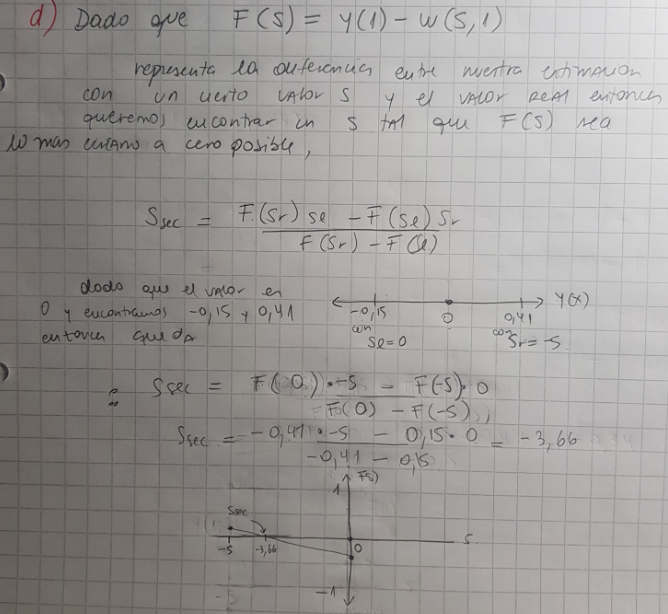 d) Dado que F(S) = Y(1) - W(S,1)
representa la diferencia entre nuestra estimación
con un cierto valor S y el valor REAL entonces
queremos encontrar un S tAl que F(S) sea
lo mas cercano a cero posible,
Ssec = F(Sr) Sl - F(Sl) Sr / F(Sr) - F(Sl)
dado que el valor en
0 y encontramos -0,15 y 0,41
entonces queda
-0,15 0 0,41 Y(x)
con Sl=0 con Sr=-5
∴ Ssec = F(0)·-5 - F(-5)·0 / F(0) - F(-5)
Ssec = -0,41·-5 - 0,15·0 / -0,41 - 0,15 = -3,66
F(S)
1
Ssec
-5 -3,66 0 S
-1